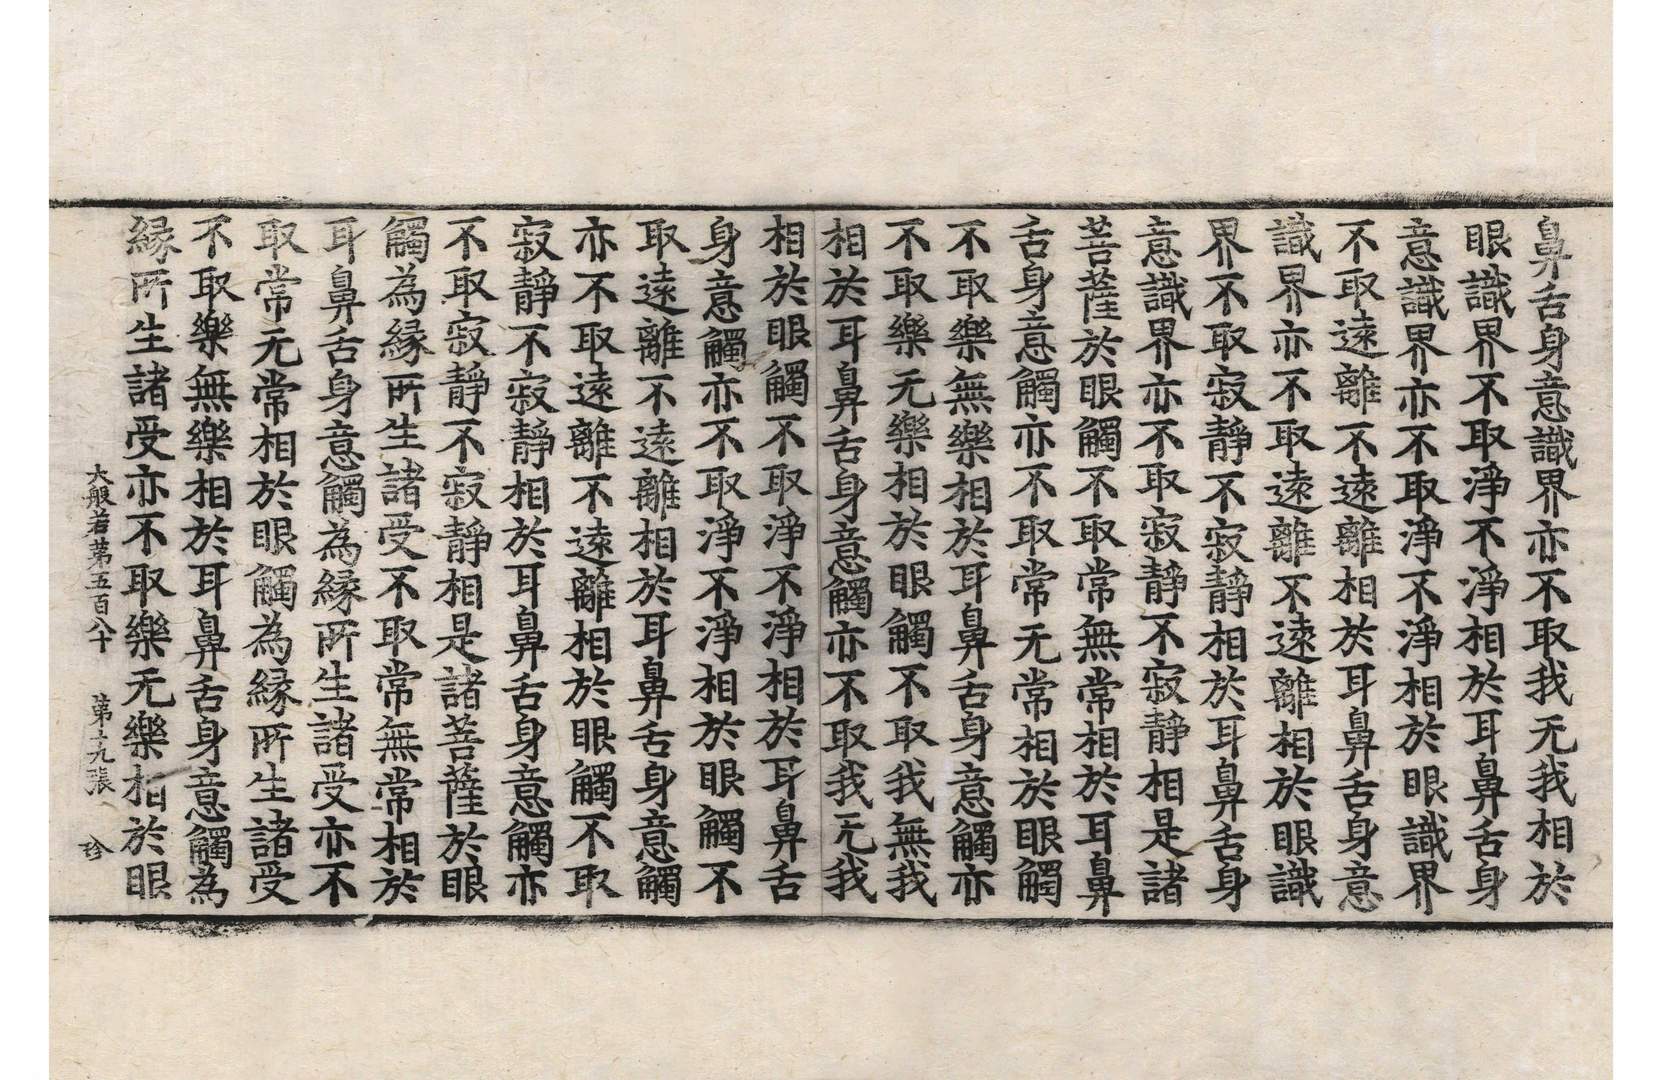 鼻舌身意識界亦不取我无我相於
眼識界不取淨不淨相於耳鼻舌身
意識界亦不取淨不淨相於眼識界
不取遠離不遠離相於耳鼻舌身意
識界亦不取遠離不遠離相於眼識
界不取寂靜不寂靜相於耳鼻舌身
意識界亦不取寂靜不寂靜相是諸
菩薩於眼觸不取常無常相於耳鼻
舌身意觸亦不取常无常相於眼觸
不取樂無樂相於耳鼻舌身意觸亦
不取樂无樂相於眼觸不取我無我
相於耳鼻舌身意觸亦不取我无我
相於眼觸不取淨不淨相於耳鼻舌
身意觸亦不取淨不淨相於眼觸不
取遠離不遠離相於耳鼻舌身意觸
亦不取遠離不遠離相於眼觸不取
寂靜不寂靜相於耳鼻舌身意觸亦
不取寂靜不寂靜相是諸菩薩於眼
觸為縁所生諸受不取常無常相於
耳鼻舌身意觸為縁所生諸受亦不
取常无常相於眼觸為縁所生諸受
不取樂無樂相於耳鼻舌身意觸為
縁所生諸受亦不取樂无樂相於眼
大般若第五百八十 第十九張 珍